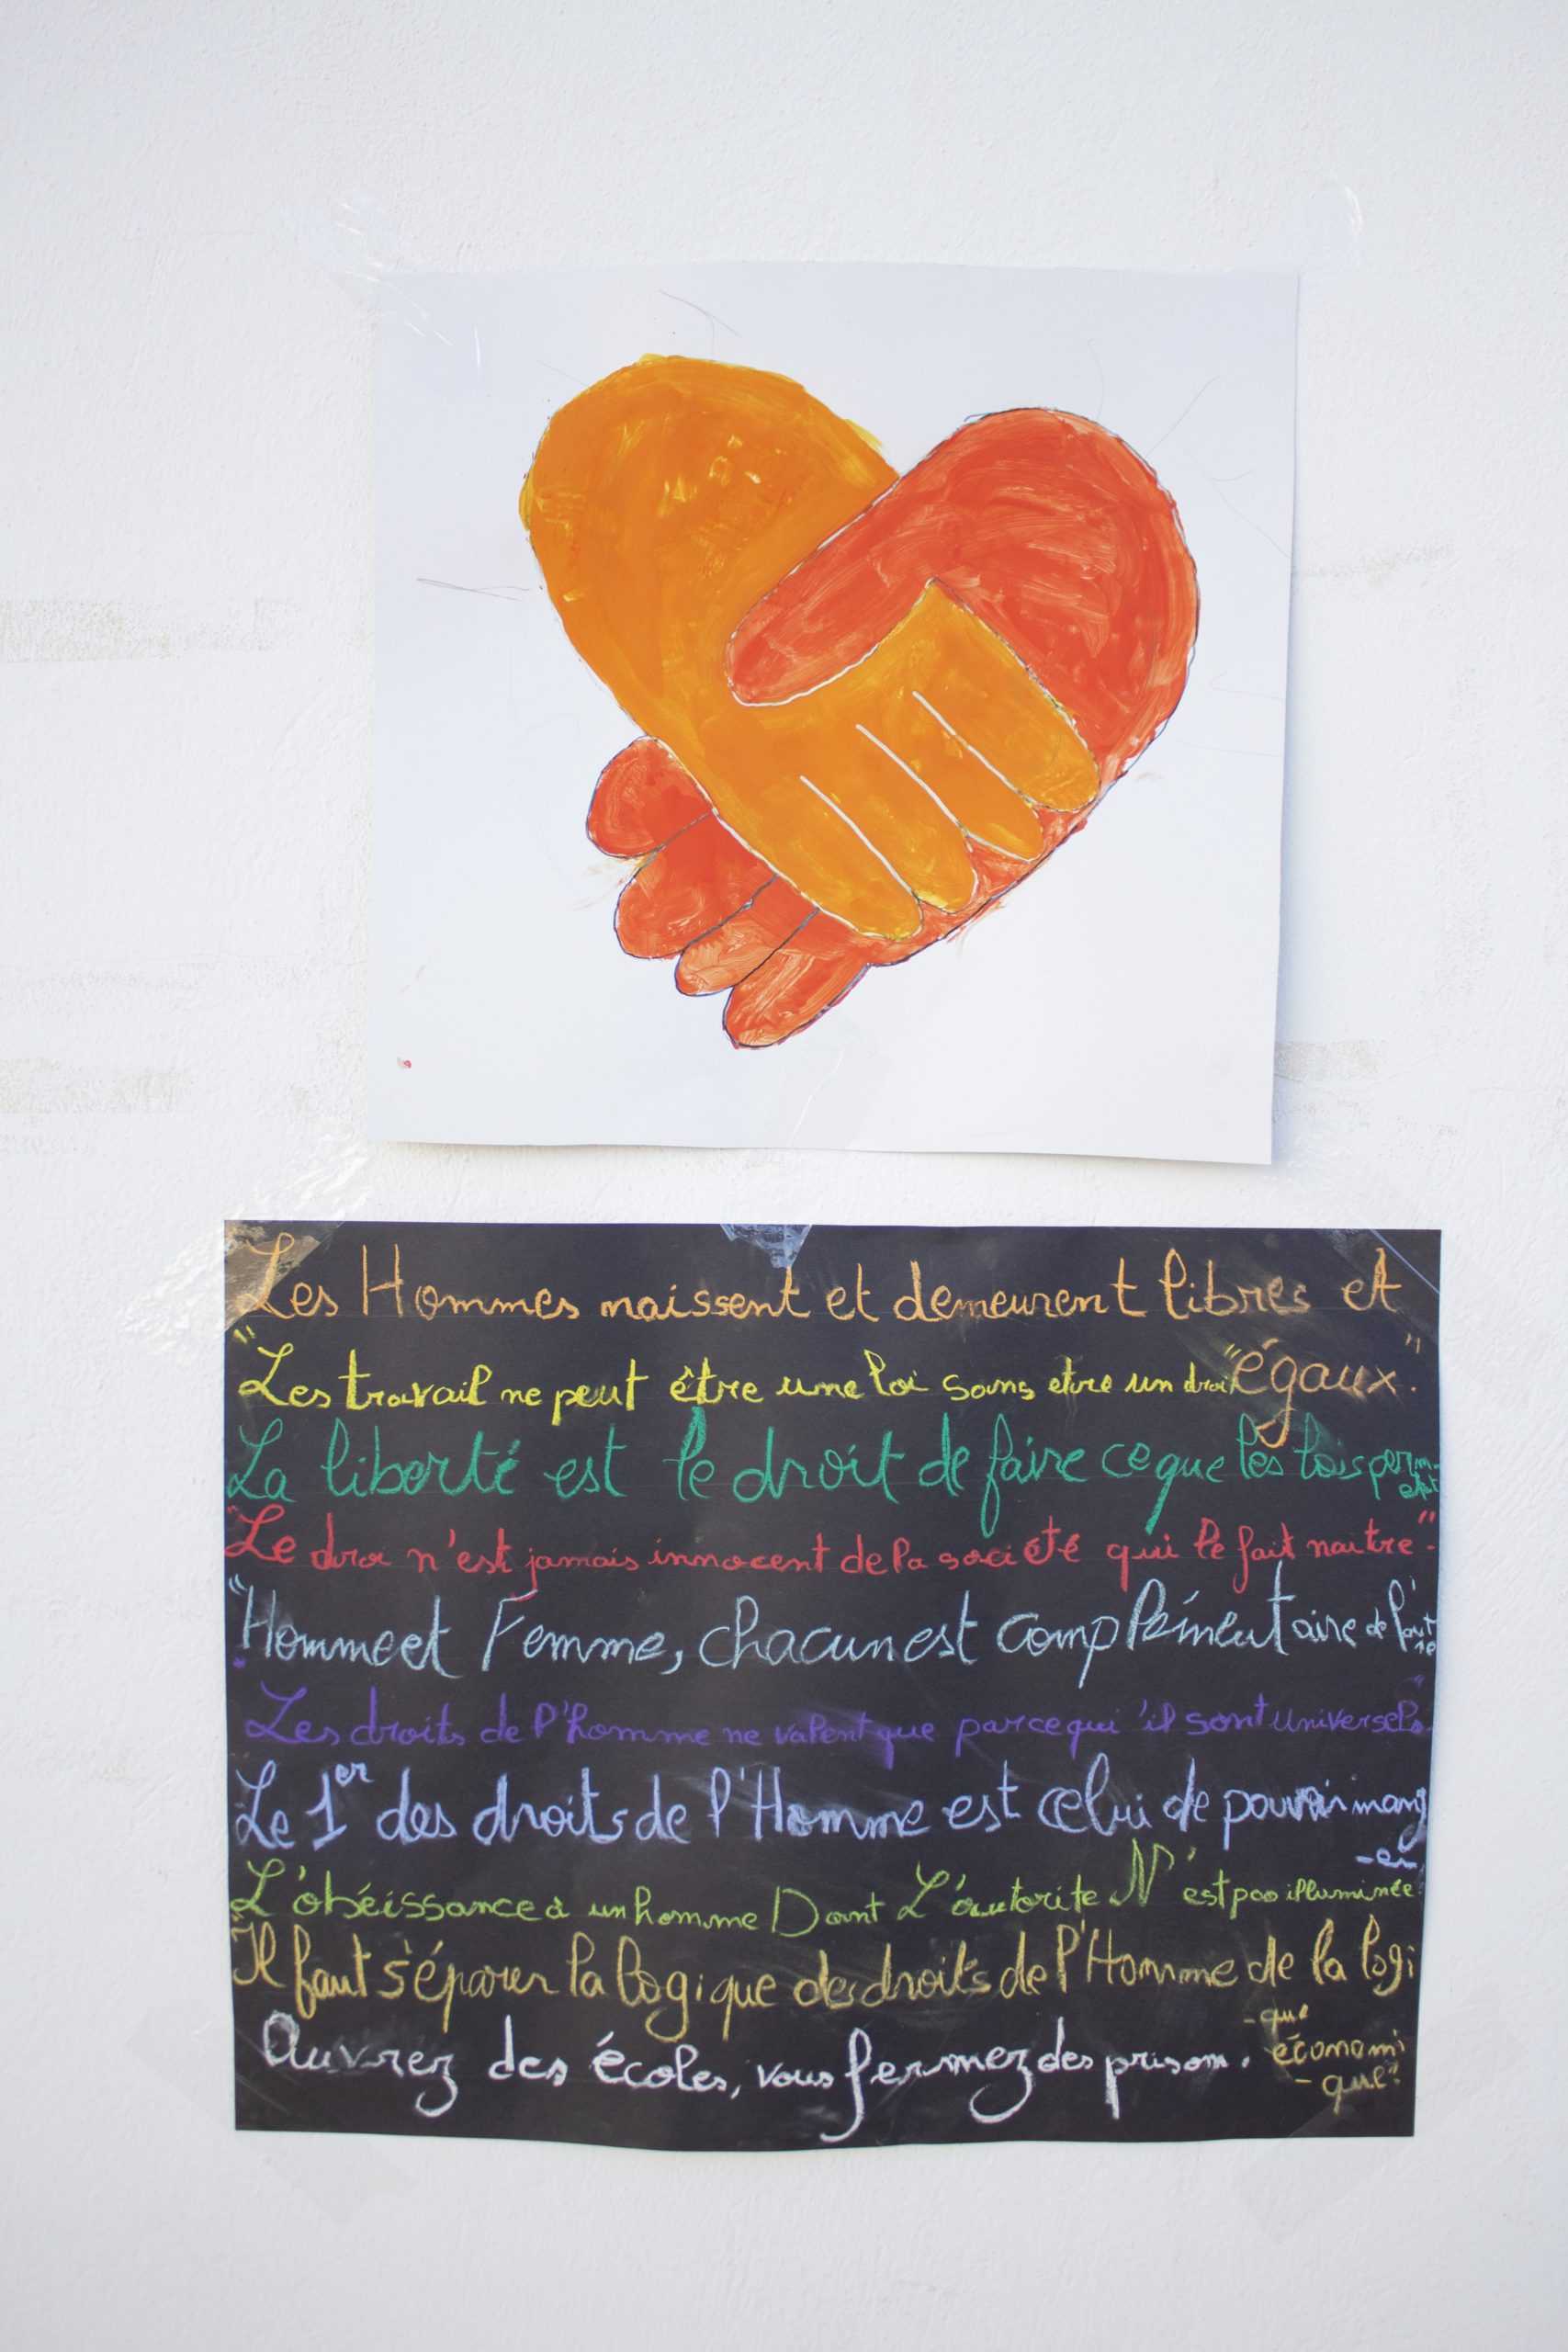 Les Hommes naissent et demeurent libres et
"égaux".
"Les travail ne peut être une loi sans etre un droit
La liberté est le droit de faire ce que les lois perm-
ettent
"Le droi n'est jamais innocent de la société qui le fait naitre".
"Homme et Femme, chacun est complémentaire de l'aut
re
Les droits de l'homme ne valent que parcequi'il sont universels".
Le 1er des droits de l'Homme est celui de pouvoir mang
-er
L'obéissance à un homme Dont L'autorite N'est pas illuminée
"Il faut s'éparer la logique des droits de l'Homme de la logi
-que
économi
-que"
Ouvrez des écoles, vous fermez des prison.